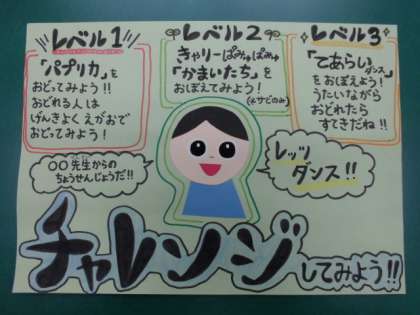 レベル1
「パプリカ」を
おどってみよう!!
おどれる人は
げんきよくえがおで
おどってみよう!
レベル2
きゃりーぱみゅぱみゅ
「かまいたち」を
おぼえてみよう!
(※サビのみ)
レベル3
「てあらいダンス」
をおぼえよう!
うたいながら
おどれたら
すてきだね!!
〇〇先生からの
ちょうせんじょうだ!!
レッツ
ダンス!!
チャレンジ
してみよう!!